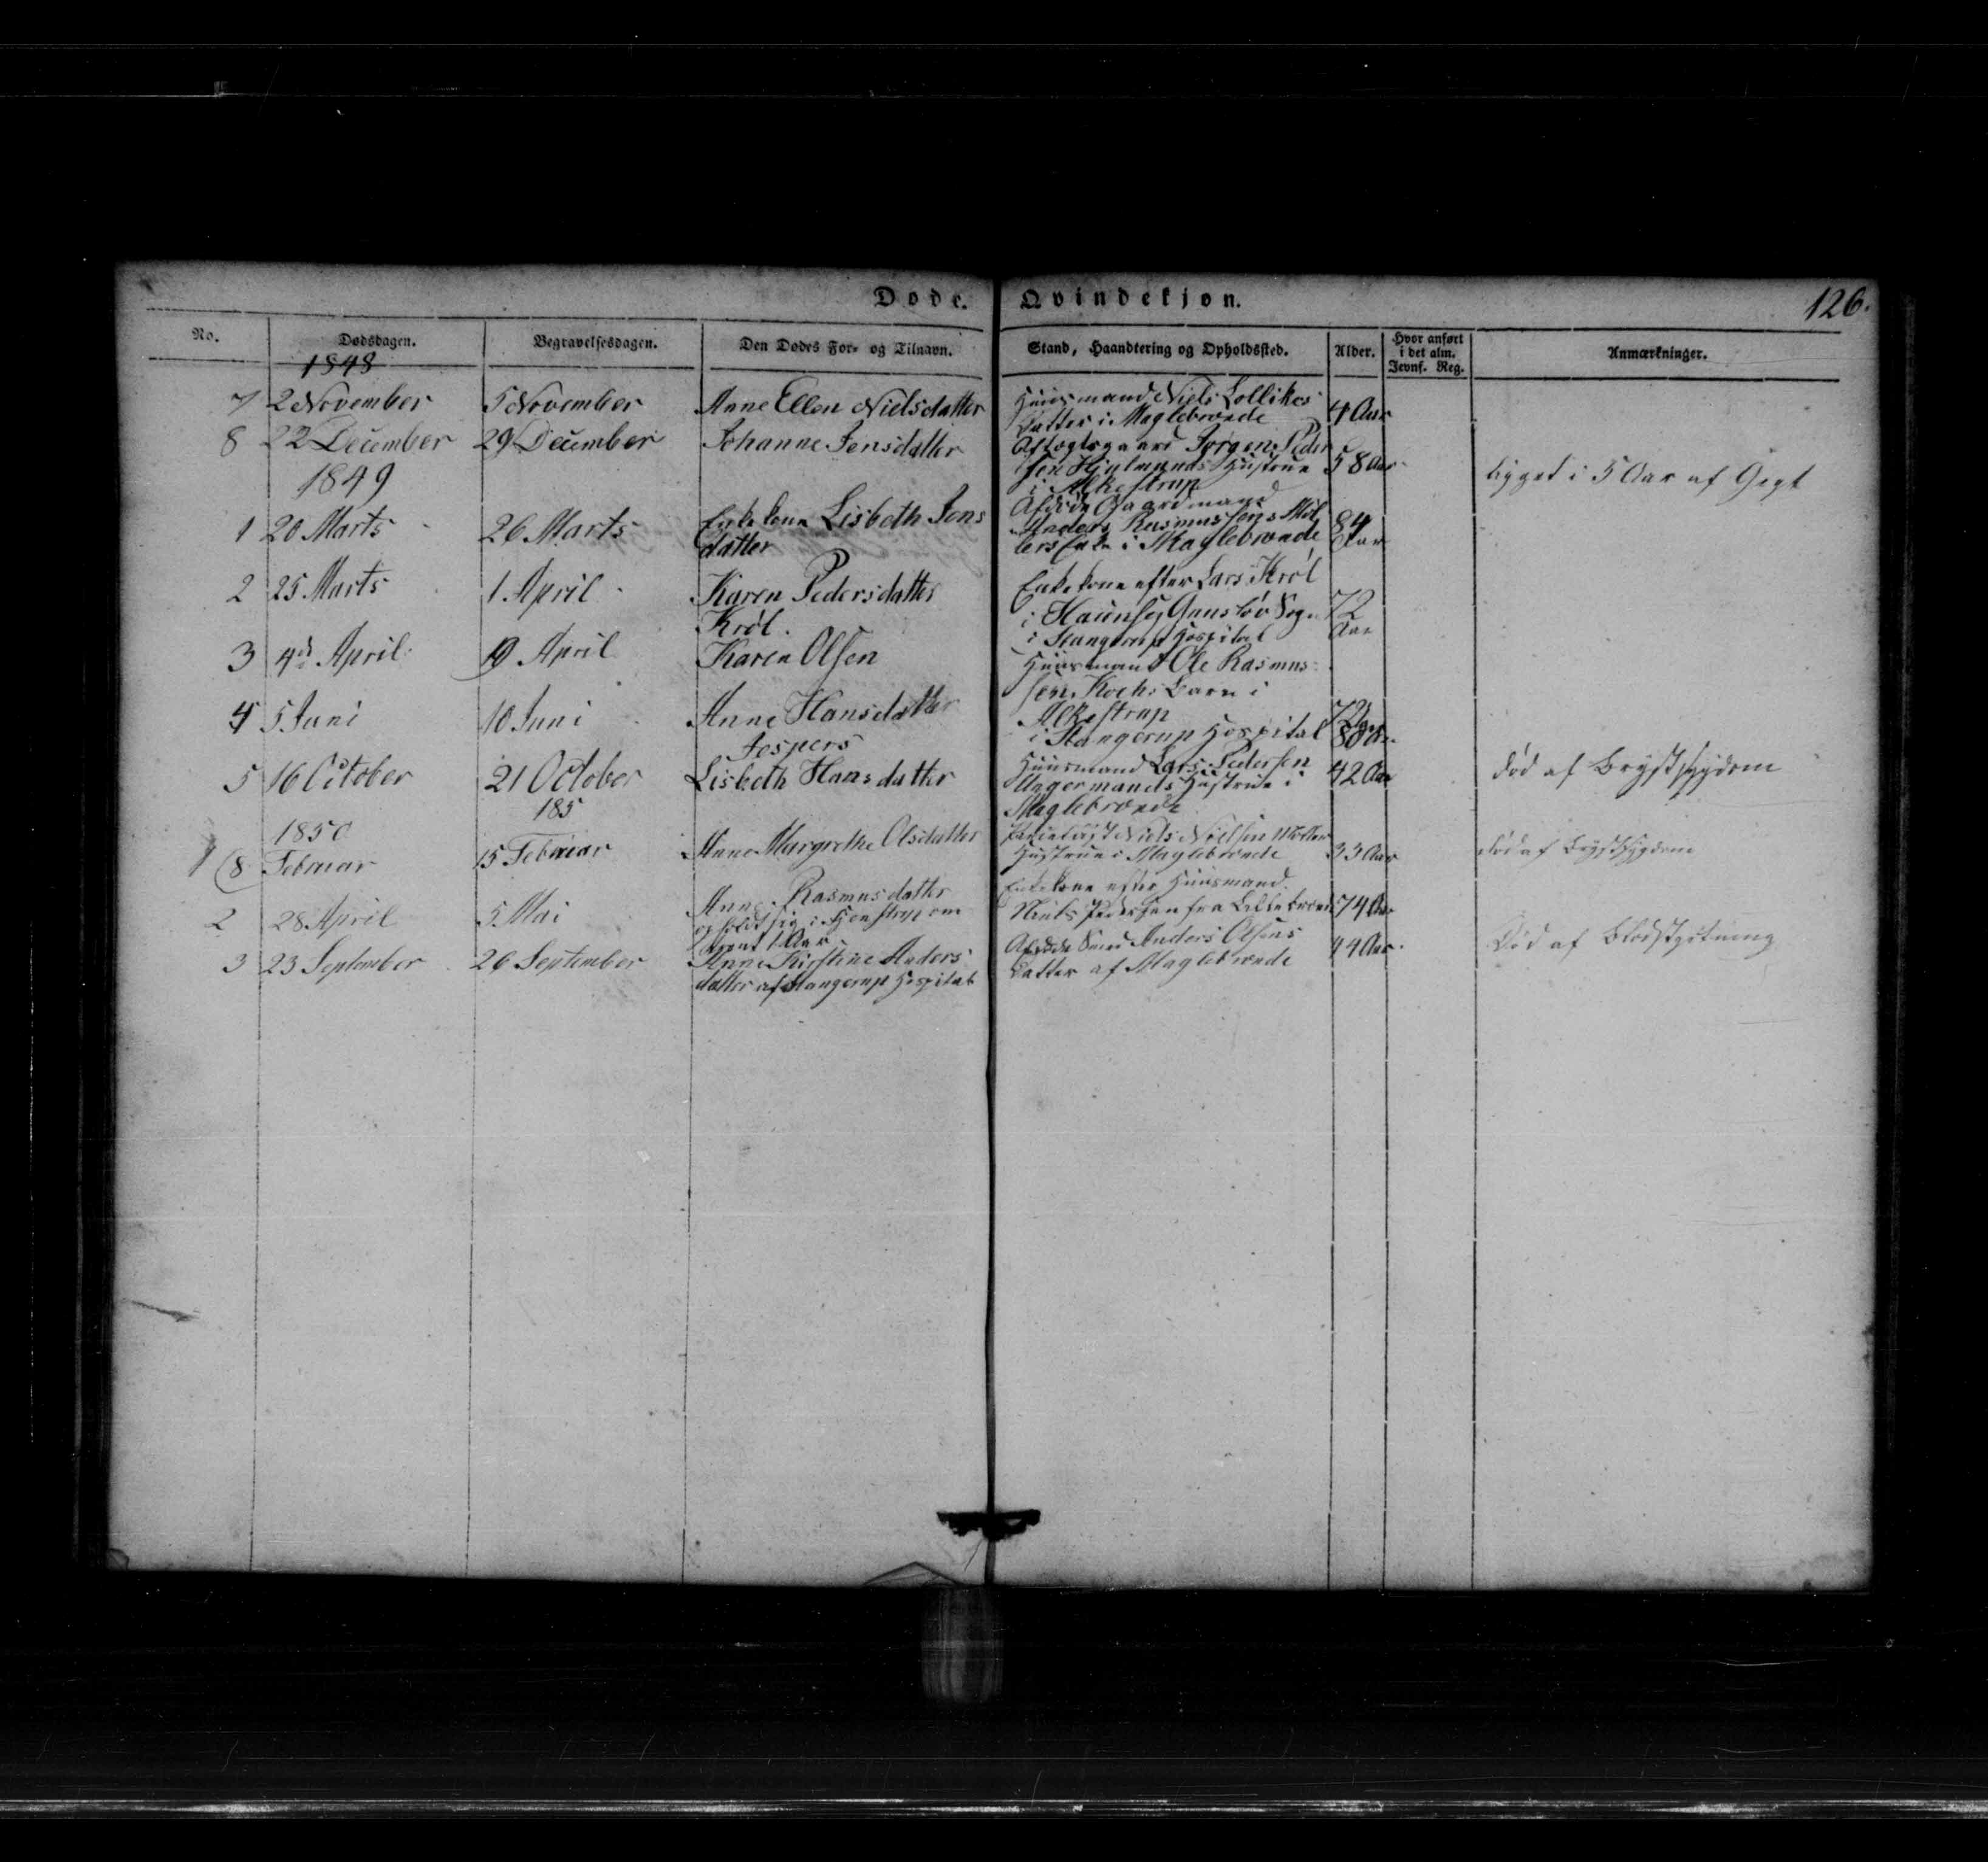 Døde. Qvindekjøn. 126.
No. Dødsdagen. Begravelsesdagen. Den Dødes For- og Tilnavn. Stand, Haandtering og Opholdssted. Alder. Hvor anført i det alm. Jevnf. Reg. Anmærkninger.
1848
7 2 November 5 November Anne Ellen Nielsdatter Huusmand Niels Lollikes 4 Aar
Datter i Maglebrænde
8 22 December 29 December Johanne Jensdatter Aftægtsgaard Jørgen Peder
sen Hjulmands Hustrue 58 Aar
i Alkestrup
ligget i 5 Aar af Gigt
1849
1 20 Marts 26 Marts Enkekone Lisbeth Jens
datter
Afdøde Gaardmand
Anders Rasmussens Møl 84
lers Enke i Maglebrænde Aar
2 25 Marts 1 April Karen Pedersdatter
Krøl.
Enkekone efter Lars Krøl
i Gunsløv Sogn 72
i Stangerup Hospital Aar
3 4de April 9 April Karen Olsen Huusmand Ole Rasmus
sen Kochs Barn i
Alkestrup
4 5 Juni 10 Juni Anne Hansdatter
Jespers
i Stangerup Hospital 80
5 16 October 21 October Lisbeth Hansdatter Huusmand Lars Pedersen
Ungermands Hustrue i 42 Aar
Maglebrænde
død af Brystsygdom
185
1850
1 8 Februar 15 Februar Anne Margrethe Olsdatter Niels Nielsen Møller
Hustrue i Maglebrænde 33 Aar
død af Brystsygdom
2 28 April 5 Mai Anne Rasmusdatter
og holdt sig i om
trent 1 Aar
Enkekone efter Huusmand
Niels Pedersen fra Lillebrænde 74 Aar
3 23 September 26 September Anne Kirstine Anders
datter af Stangerup Hospital
Afdøde Smed Anders Olsens 44 Aar
Datter af Maglebrænde
Død af Blodstyrtning